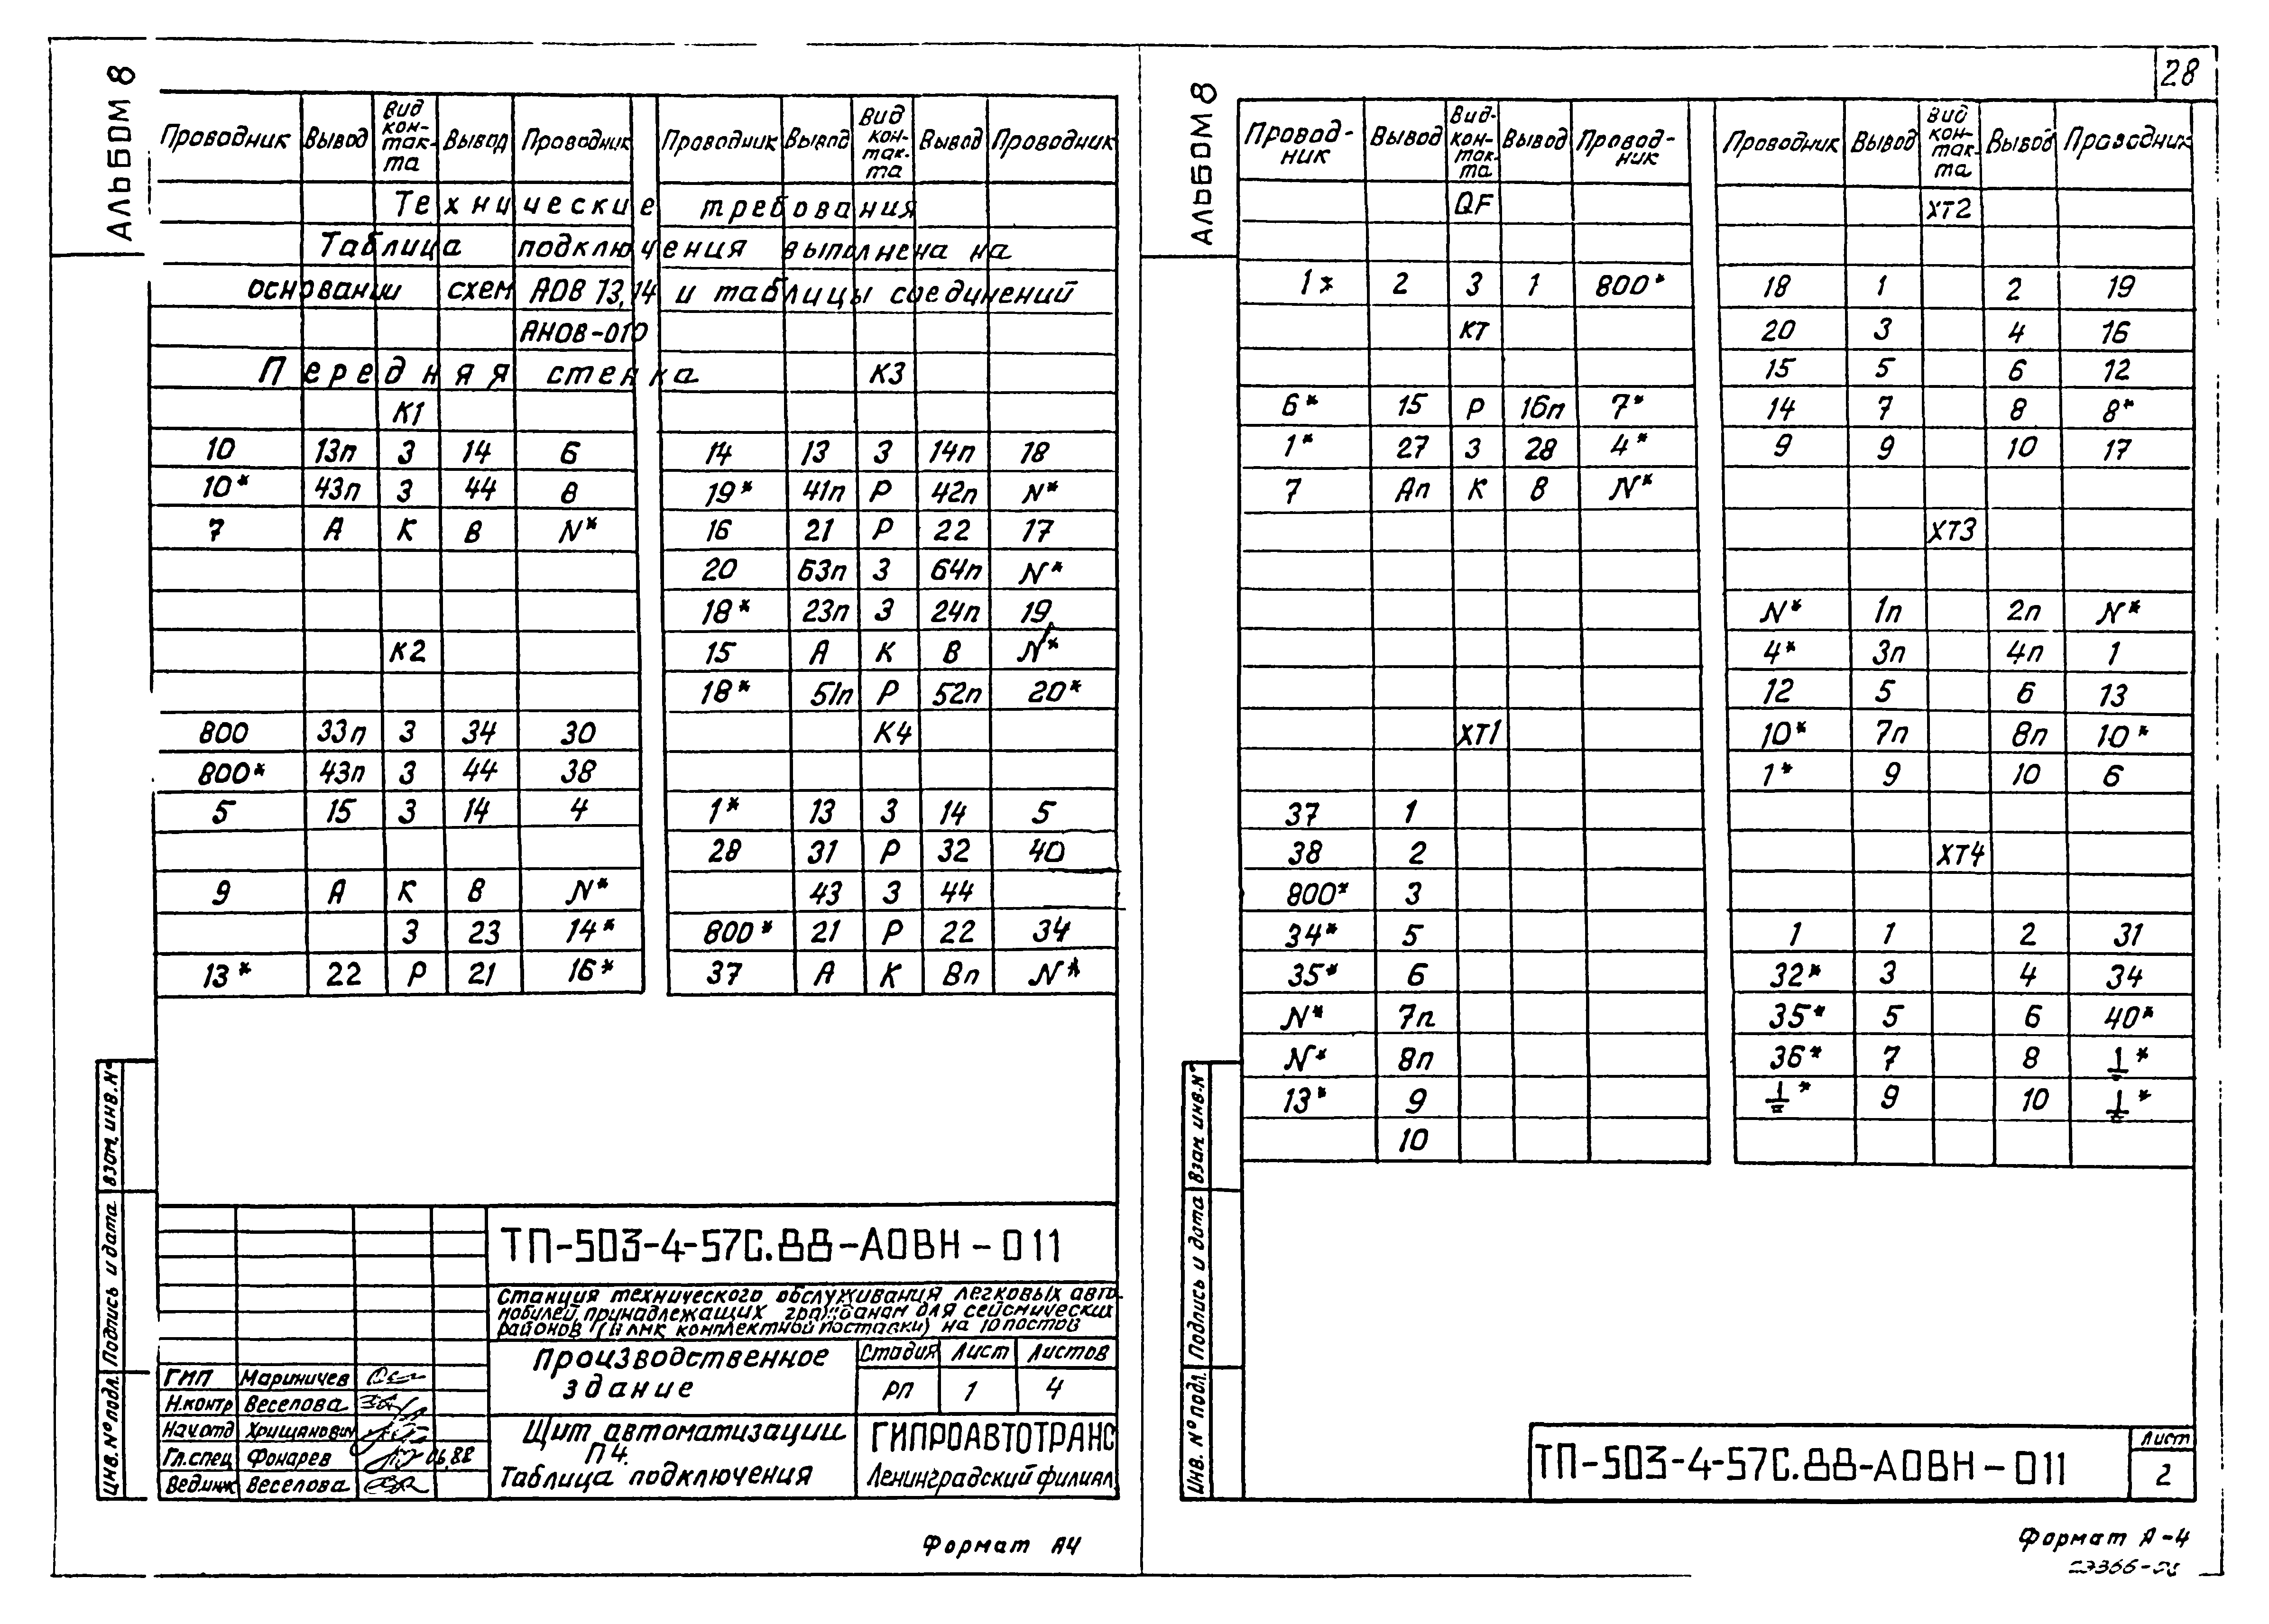 28
АЛЬБОМ 8
Проводник Вывод Вид контакта Вывод Проводник Проводник Вывод Вид контакта Вывод Проводник
Технические требования
Таблица подключения выполнена на
основании схем АОВ 13,14 и таблицы соединений
АНОВ-010
Передняя стенка К3
К1
10 13п З 14 6 14 13 З 14п 18
10* 43п З 44 8 19* 41п Р 42п N*
7 А К В N* 16 21 Р 22 17
20 63п З 64п N*
18* 23п З 24п 19
К2 15 А К В N*
18* 51п Р 52п 20*
800 33п З 34 30 К4
800* 43п З 44 38
5 15 З 14 4 1* 13 З 14 5
28 31 Р 32 40
9 А К В N* 43 З 44
З 23 14* 800* 21 Р 22 34
13* 22 Р 21 16* 37 А К Вп N*
ТП-503-4-57С.88-АОВН-011
Станция технического обслуживания легковых авто-
мобилей, принадлежащих гражданам для сейсмических
районов (в ЛМК комплектной поставки) на 10 постов
Производственное
здание
Стадия Лист Листов
РП 1 4
Щит автоматизации
П4.
Таблица подключения
ГИПРОАВТОТРАНС
Ленинградский филиал
ГИП Мариничев
Н.контр Веселова
Нач.отд Хрищанович
Гл.спец Фонарев 06.88
Вед.инж Веселова
Инв. № подл. Подпись и дата Взам. инв. №
Формат А4
АЛЬБОМ 8
Провод-
ник Вывод Вид контакта Вывод Провод-
ник Проводник Вывод Вид контакта Вывод Проводник
QF ХТ2
1* 2 З 1 800* 18 1 2 19
КТ 20 3 4 16
15 5 6 12
6* 15 Р 16п 7* 14 7 8 8*
1* 27 З 28 4* 9 9 10 17
7 Ап К В N*
ХТ3
N* 1п 2п N*
4* 3п 4п 1
12 5 6 13
ХТ1 10* 7п 8п 10*
1* 9 10 6
37 1
38 2 ХТ4
800* 3
34* 5 1 1 2 31
35* 6 32* 3 4 34
N* 7п 35* 5 6 40*
N* 8п 36* 7 8 ⏚*
13* 9 ⏚* 9 10 ⏚*
10
Инв. № подл. Подпись и дата Взам. инв. №
ТП-503-4-57С.88-АОВН-011
Лист
2
Формат А-4